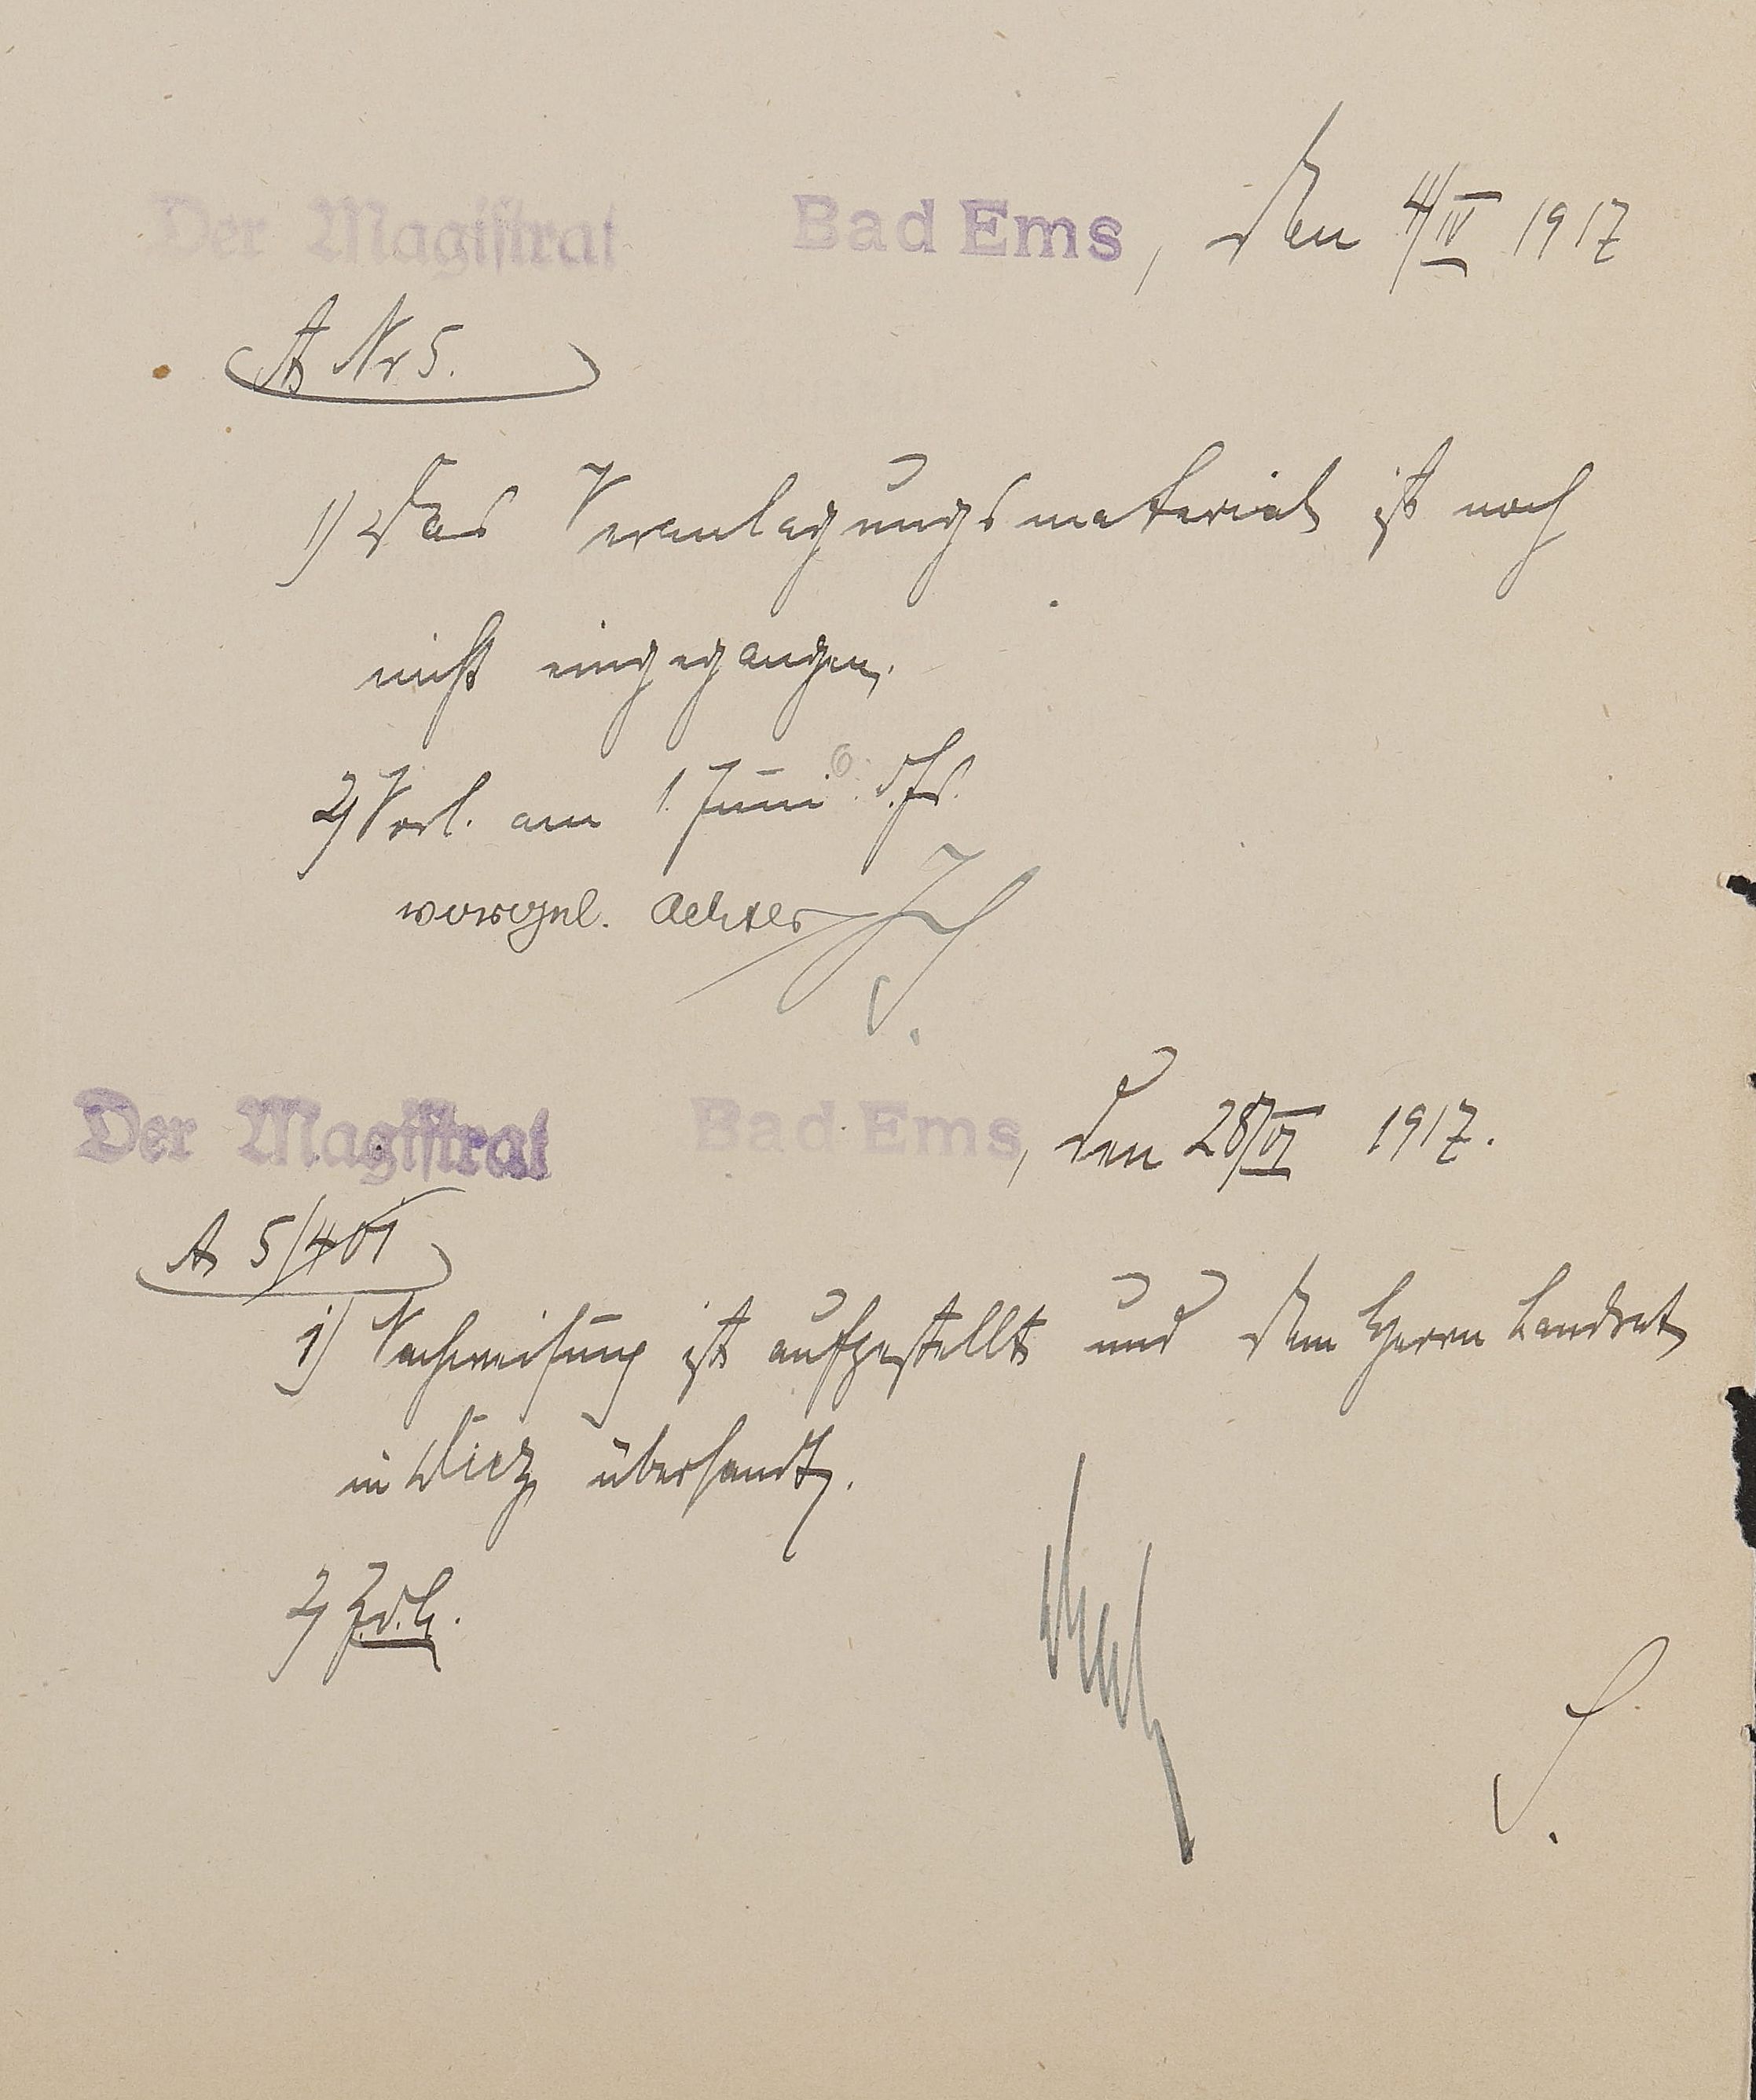 Der Magistrat Bad Ems, den 4/IV 1917
A Nr 5.
1) Das Veranlagungsmaterial ist noch
nicht eingegangen.
2) Vorl. am 1. Juni d. Js.
vorgel.
Der Magistrat Bad Ems, den 28/VI 1917.
A 5/401
1) Nachweisung ist aufgestellt und dem Herrn Landrat
in Diez übersandt.
2) Z. d. A.